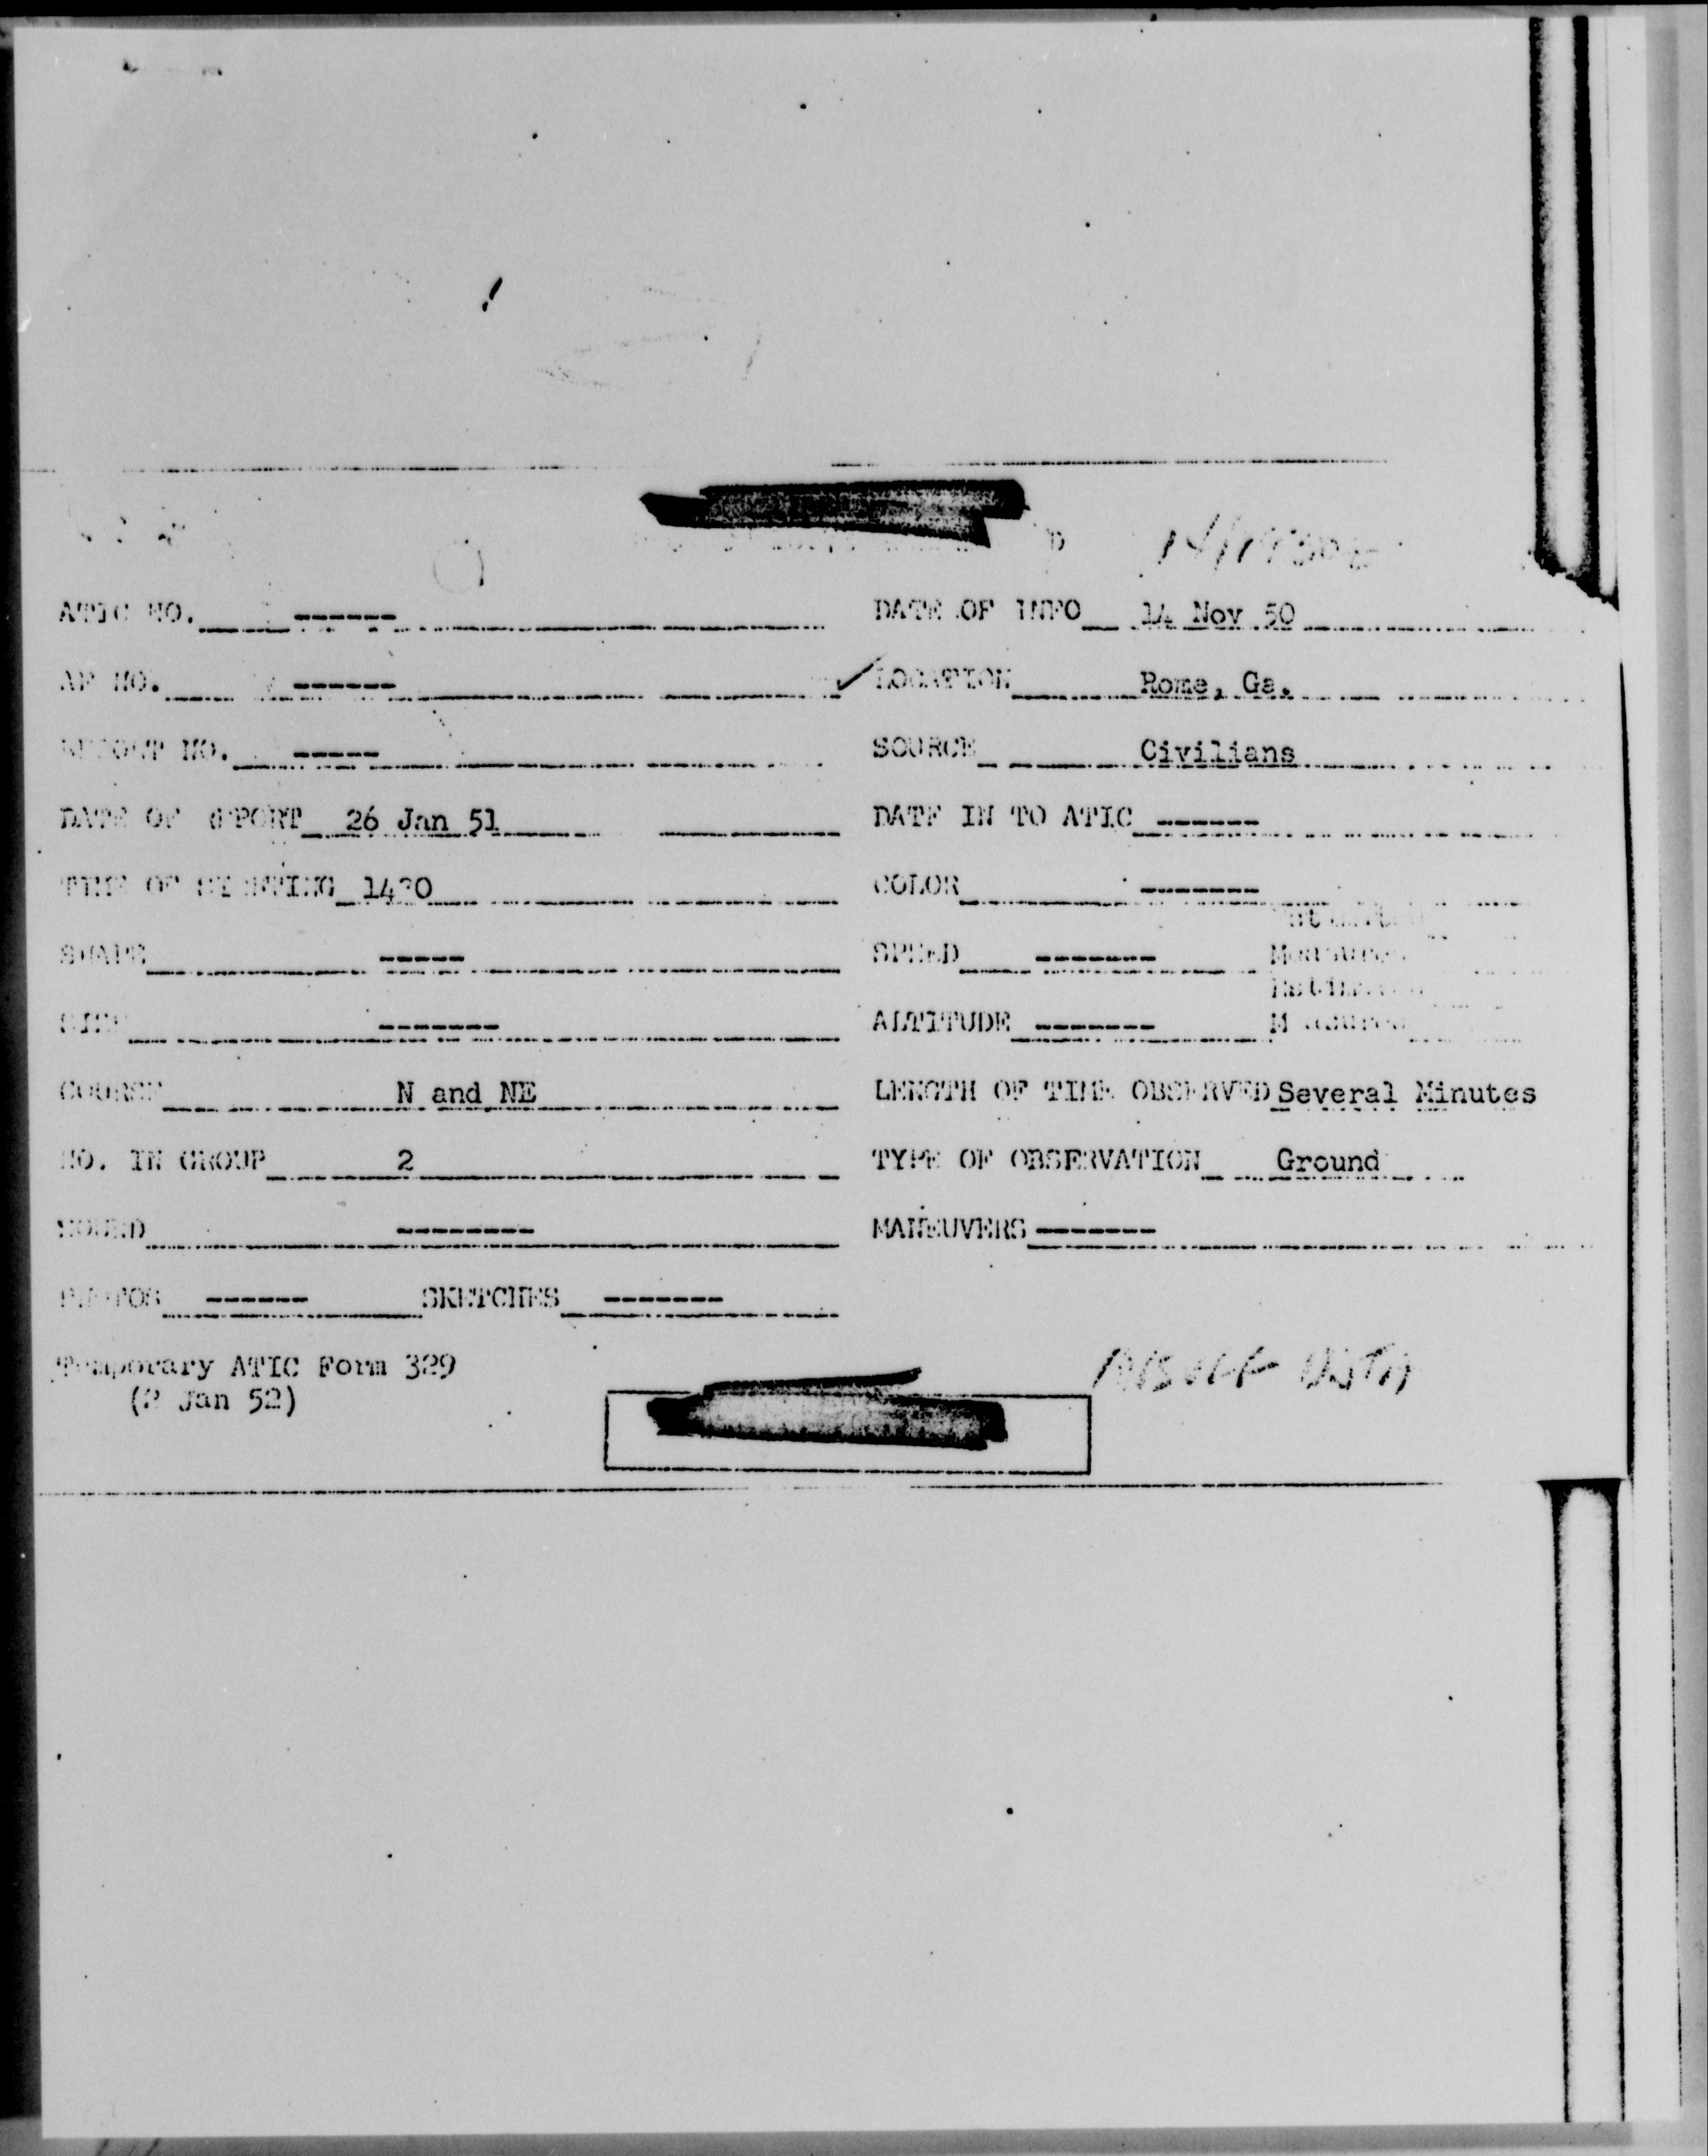 ATIC NO. ------ DATE OF INFO 14 Nov 50
AF NO. ------ ✓LOCATION Rome, Ga.
REPORT NO. ----- SOURCE Civilians
DATE OF REPORT 26 Jan 51 DATE IN TO ATIC ------
TIME OF SIGHTING COLOR -------
SHAPE ----- SPEED ------- Measured
SIZE ------- ALTITUDE ------- Measured
COURSE N and NE LENGTH OF TIME OBSERVED Several Minutes
NO. IN GROUP 2 TYPE OF OBSERVATION Ground
SOUND -------- MANEUVERS -------
PHOTOS ------ SKETCHES -------
Temporary ATIC Form 329
(2 Jan 52)